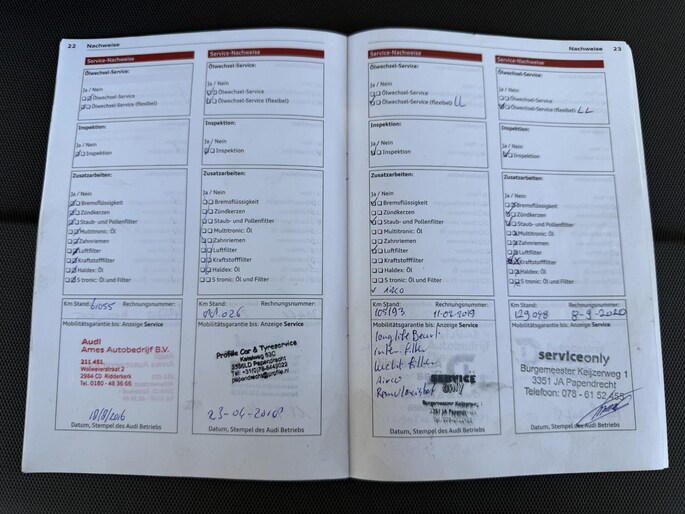 22 Nachweise
Service-Nachweise
Ölwechsel-Service:
Ja / Nein
Ölwechsel-Service
Ölwechsel-Service (flexibel)
Inspektion:
Ja / Nein
Inspektion
Zusatzarbeiten:
Ja / Nein
Bremsflüssigkeit
Zündkerzen
Staub- und Pollenfilter
Multitronic: Öl
Zahnriemen
Luftfilter
Kraftstofffilter
Haldex: Öl
S tronic: Öl und Filter
Km Stand: 61055 Rechnungsnummer:
Mobilitätsgarantie bis: Anzeige Service
Audi
Ames Autobedrijf B.V.
211.451.
2984 CD Ridderkerk
Tel. 0180 - 48 36 66
Datum, Stempel des Audi Betriebs
Service-Nachweise
Ölwechsel-Service:
Ja / Nein
Ölwechsel-Service
Ölwechsel-Service (flexibel)
Inspektion:
Ja / Nein
Inspektion
Zusatzarbeiten:
Ja / Nein
Bremsflüssigkeit
Zündkerzen
Staub- und Pollenfilter
Multitronic: Öl
Zahnriemen
Luftfilter
Kraftstofffilter
Haldex: Öl
S tronic: Öl und Filter
Km Stand: Rechnungsnummer:
Mobilitätsgarantie bis: Anzeige Service
Profile Car & Tyreservice
Papendrecht
23-04-2018
Datum, Stempel des Audi Betriebs
Nachweise 23
Service-Nachweise
Ölwechsel-Service:
Ja / Nein
Ölwechsel-Service
Ölwechsel-Service (flexibel) LL
Inspektion:
Ja / Nein
Inspektion
Zusatzarbeiten:
Ja / Nein
Bremsflüssigkeit
Zündkerzen
Staub- und Pollenfilter
Multitronic: Öl
Zahnriemen
Luftfilter
Kraftstofffilter
Haldex: Öl
S tronic: Öl und Filter
Km Stand: Rechnungsnummer:
105193
Mobilitätsgarantie bis: Anzeige Service
longlife Beurt
Airco
SERVICE
Datum, Stempel des Audi Betriebs
Service-Nachweise
Ölwechsel-Service:
Ja / Nein
Ölwechsel-Service
Ölwechsel-Service (flexibel) LL
Inspektion:
Ja / Nein
Inspektion
Zusatzarbeiten:
Ja / Nein
Bremsflüssigkeit
Zündkerzen
Staub- und Pollenfilter
Multitronic: Öl
Zahnriemen
Luftfilter
Kraftstofffilter
Haldex: Öl
S tronic: Öl und Filter
Km Stand: Rechnungsnummer:
129048 8-9-2020
Mobilitätsgarantie bis: Anzeige Service
serviceonly
Burgemeester Keijzerweg 1
3351 JA Papendrecht
Telefoon: 078 - 61 52 455
Datum, Stempel des Audi Betriebs